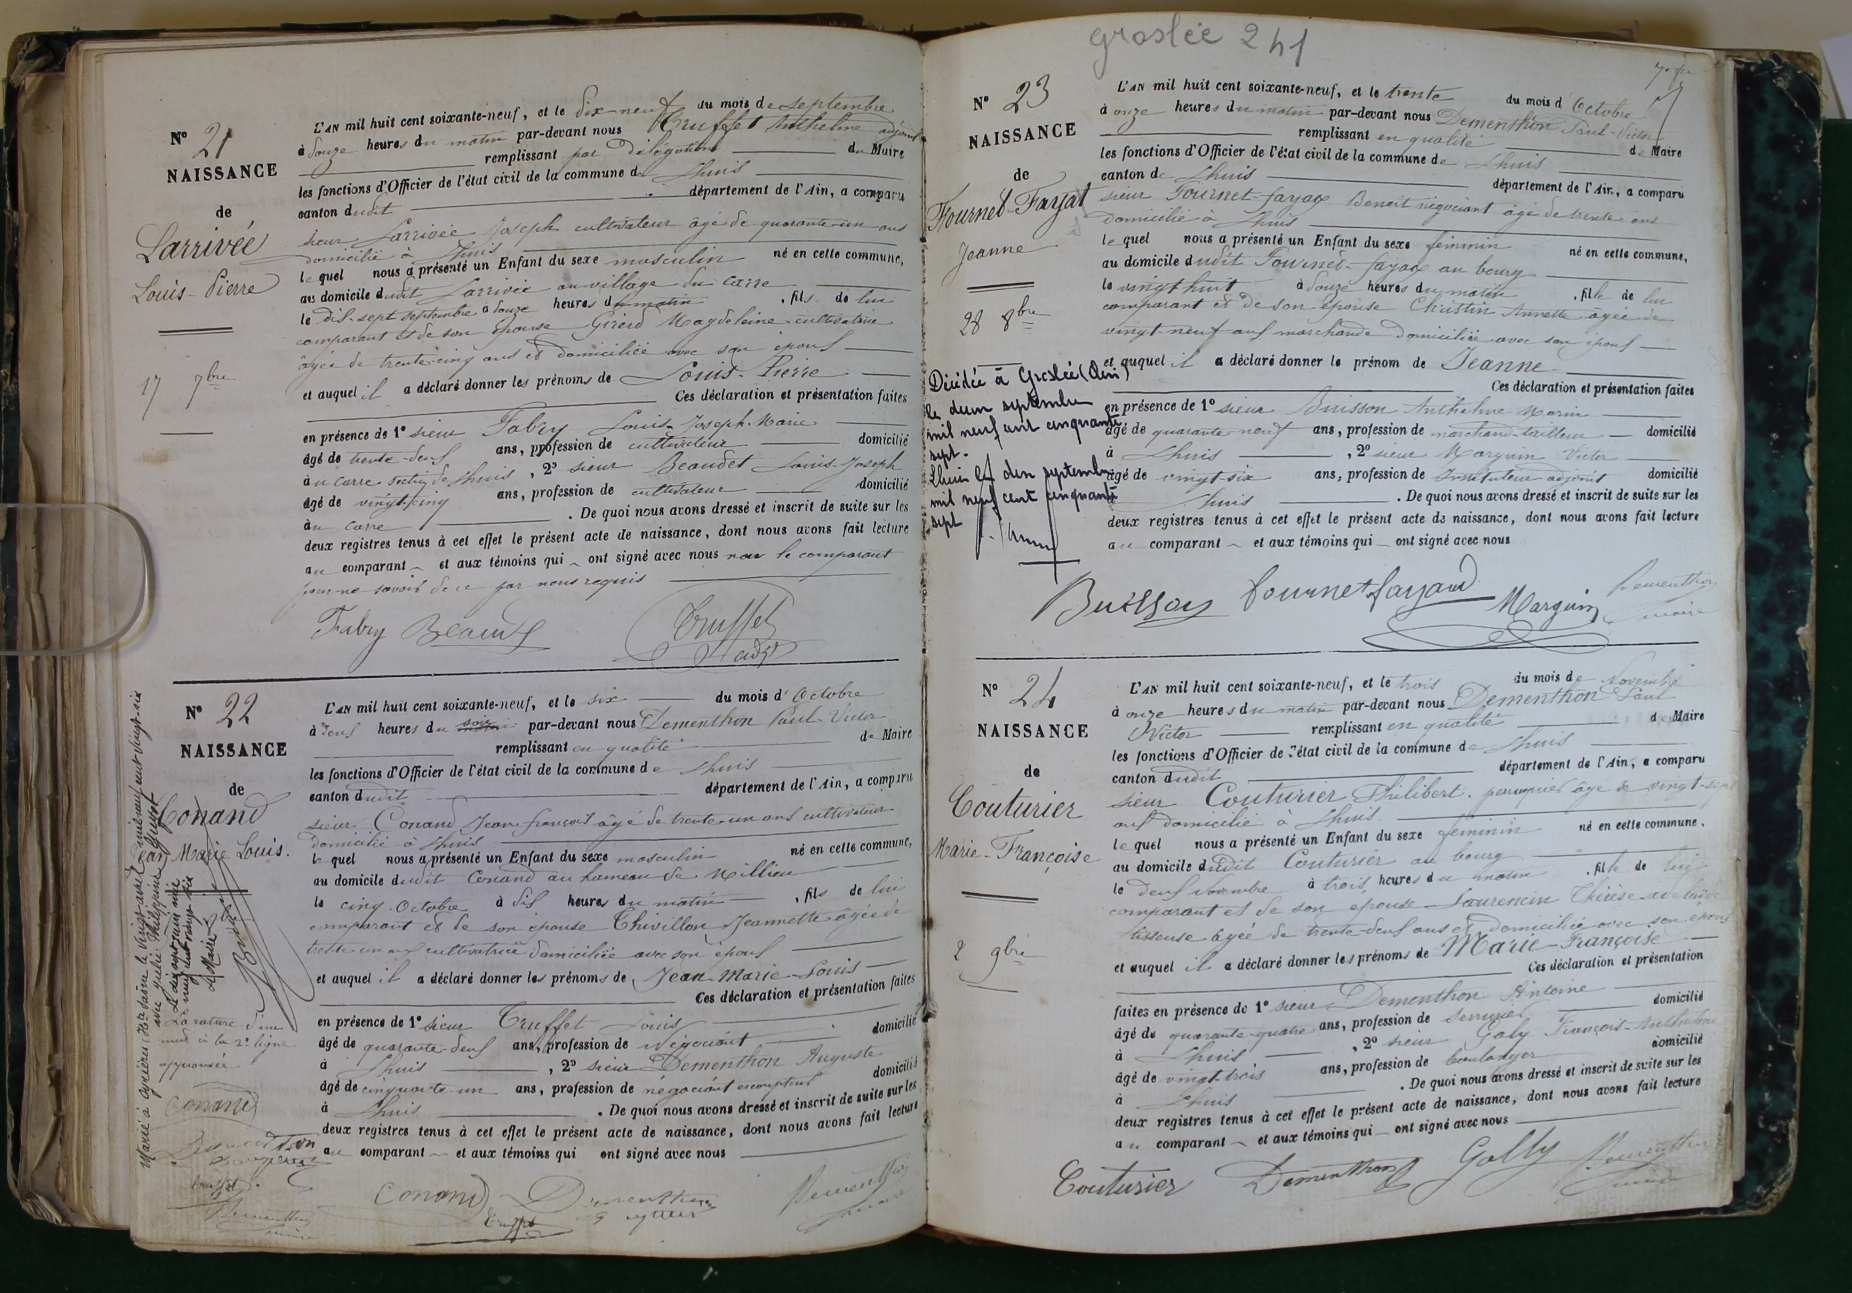 Nº 21
NAISSANCE
de
Larrivée
Louis-Pierre
17 7bre
L'AN mil huit cent soixante-neuf, et le dix-neuf du mois de septembre
à douze heures du matin par-devant nous Truffet Anthelme adjoint
remplissant par délégation du Maire
les fonctions d'Officier de l'état civil de la commune de Lhuis
canton dudit département de l'Ain, a comparu
sieur Larrivée Joseph cultivateur âgé de quarante-un ans
domicilié à Lhuis
lequel nous a présenté un Enfant du sexe masculin né en cette commune,
au domicile dudit Larrivée au village du Carre
le dix-sept septembre à douze heures du matin, fils de lui
comparant et de son épouse Girerd Magdeleine cultivatrice
âgée de trente-cinq ans et domiciliée avec son époux
et auquel il a déclaré donner les prénoms de Louis-Pierre
Ces déclaration et présentation faites
en présence de 1º sieur Fabry Louis-Joseph-Marie
âgé de trente-deux ans, profession de cultivateur domicilié
à u Carre de Lhuis, 2º sieur Beaudet Louis-Joseph
âgé de vingt-cinq ans, profession de cultivateur domicilié
au Carre. De quoi nous avons dressé et inscrit de suite sur les
deux registres tenus à cet effet le présent acte de naissance, dont nous avons fait lecture
au comparant et aux témoins qui ont signé avec nous non le comparant
pour ne savoir de ce par nous requis
Fabry Beaudet Truffet
adjt
Nº 22
NAISSANCE
de
Conand
Jean Marie Louis.
L'AN mil huit cent soixante-neuf, et le six du mois d'Octobre
à deux heures du soir matin par-devant nous Dementhon Paul-Victor
remplissant en qualité de Maire
les fonctions d'Officier de l'état civil de la commune de Lhuis
canton dudit département de l'Ain, a comparu
sieur Conand Jean-françois âgé de trente-un ans cultivateur
domicilié à Lhuis
lequel nous a présenté un Enfant du sexe masculin né en cette commune,
au domicile dudit Conand au hameau de Millieu
le cinq Octobre à dix heures du matin, fils de lui
comparant et de son épouse Thivillon Jeannette âgée de
trente-un ans cultivatrice domiciliée avec son époux
et auquel il a déclaré donner les prénoms de Jean-Marie-Louis
Ces déclaration et présentation faites
en présence de 1º sieur Truffet Louis
âgé de quarante-deux ans, profession de Négociant domicilié
à Lhuis, 2º sieur Dementhon Auguste
âgé de cinquante un ans, profession de négociant domicilié
à Lhuis. De quoi nous avons dressé et inscrit de suite sur les
deux registres tenus à cet effet le présent acte de naissance, dont nous avons fait lecture
au comparant et aux témoins qui ont signé avec nous
La rature d'un
mot à la 2e ligne
approuvée
Conand
Conand Dementhon
Truffet
Dementhon
maire
Groslée 241
Nº 23
NAISSANCE
de
Fournet-Fayat
Jeanne
28 8bre
Décédée à Groslée (Ain)
le deux septembre
mil neuf cent cinquante
sept.
Lhuis le dix septembre
mil neuf cent cinquante
sept
L'AN mil huit cent soixante-neuf, et le trente du mois d'Octobre
à onze heures du matin par-devant nous Dementhon Paul-Victor
remplissant en qualité de Maire
les fonctions d'Officier de l'état civil de la commune de Lhuis
canton de Lhuis département de l'Ain, a comparu
sieur Fournet-fayax Benoit négociant âgé de trente ans
domicilié à Lhuis
lequel nous a présenté un Enfant du sexe féminin né en cette commune,
au domicile dudit Fournet-fayax au bourg
le vingt huit à douze heures du matin, fille de lui
comparant et de son épouse Christin Annette âgée de
vingt neuf ans marchande domiciliée avec son époux
et auquel il a déclaré donner le prénom de Jeanne
Ces déclaration et présentation faites
en présence de 1º sieur Buisson Anthelme Marin
âgé de quarante-neuf ans, profession de marchand-tailleur domicilié
à Lhuis, 2º sieur Marguin Victor
âgé de vingt-six ans, profession de Instituteur adjoint domicilié
Lhuis. De quoi nous avons dressé et inscrit de suite sur les
deux registres tenus à cet effet le présent acte de naissance, dont nous avons fait lecture
au comparant et aux témoins qui ont signé avec nous
Buisson fournet fayard Marguin Dementhon
maire
Nº 24
NAISSANCE
de
Couturier
Marie-Françoise
2 9bre
L'AN mil huit cent soixante-neuf, et le trois du mois de Novembre
à onze heures du matin par-devant nous Dementhon Paul
Victor remplissant en qualité de Maire
les fonctions d'Officier de l'état civil de la commune de Lhuis
canton dudit département de l'Ain, a comparu
sieur Couturier Philibert perruquier âgé de vingt-sept
ans domicilié à Lhuis
lequel nous a présenté un Enfant du sexe féminin né en cette commune.
au domicile dudit Couturier au bourg
le deux novembre à trois heures du matin, fille de lui
comparant et de son épouse Laurencin Thérèse-adelaïde
tisseuse âgée de trente-deux ans et domiciliée avec son époux
et auquel il a déclaré donner les prénoms de Marie-Françoise
Ces déclaration et présentation
faites en présence de 1º sieur Dementhon Antoine
âgé de quarante-quatre ans, profession de serrurier domicilié
à Lhuis, 2º sieur Galy François-Anthelme
âgé de vingt-trois ans, profession de boulanger domicilié
à Lhuis. De quoi nous avons dressé et inscrit de suite sur les
deux registres tenus à cet effet le présent acte de naissance, dont nous avons fait lecture
au comparant et aux témoins qui ont signé avec nous
Couturier Dementhon Golly Dementhon
maire